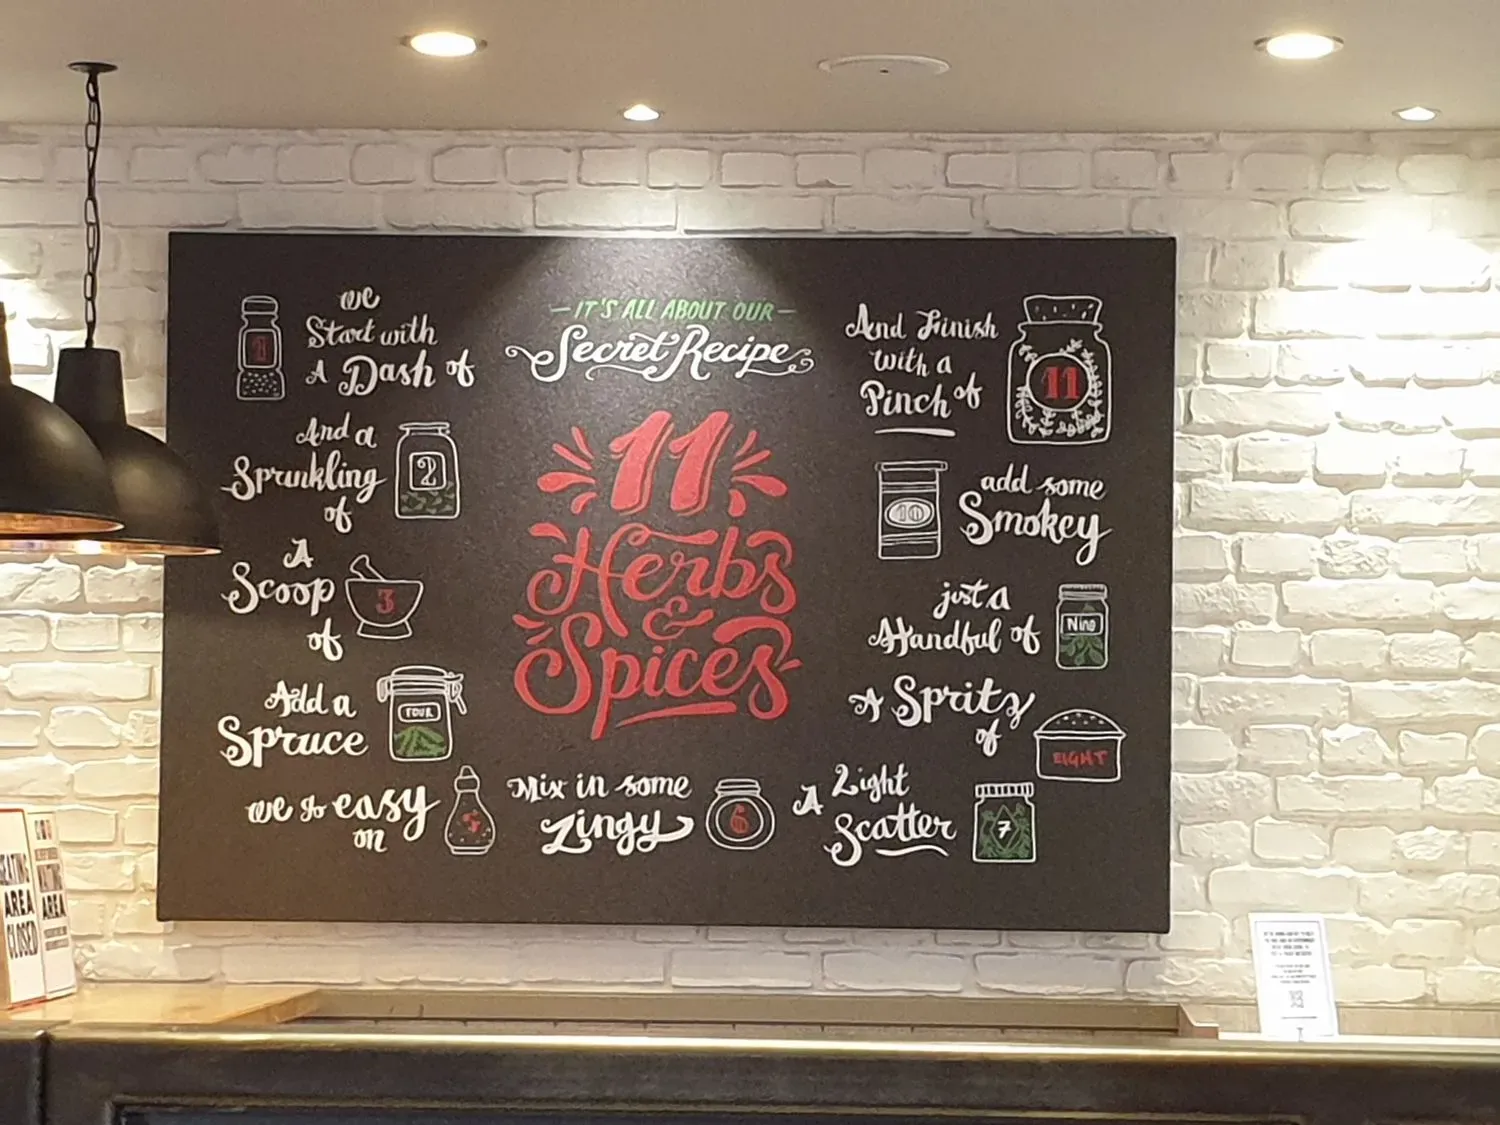 IT'S ALL ABOUT OUR
Secret Recipe
11
Herbs
&
Spices
we
Start with
A Dash of
1
And a
Sprinkling
of
2
A
Scoop
of
3
Add a
Spruce
FOUR
we go easy
on
5
Mix in some
Zingy
6
A Light
Scatter
7
A Spritz
of
EIGHT
just a
Handful of
Nine
add some
Smokey
10
And Finish
with a
Pinch of
11
AREA
CLOSED
AREA